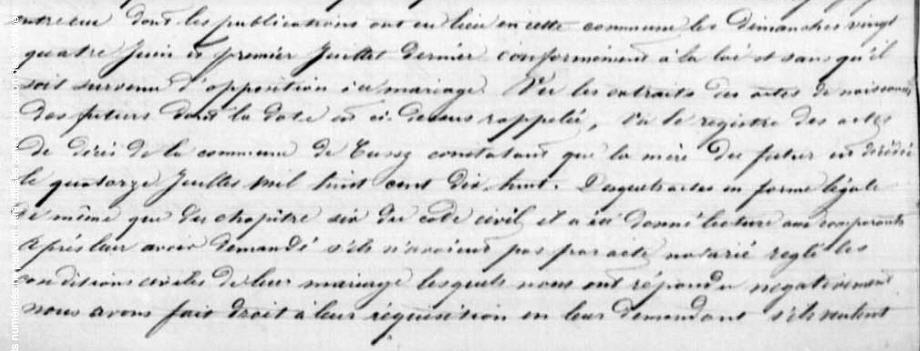 entr'eux dont les publications ont eu lieu en cette commune les dimanches vingt
quatre Juin et premier Juillet dernier conformément à la loi et sans qu'il
soit survenu d'opposition à ce mariage. Vu les extraits des actes de naissances
des futurs dont la date est ci-dessus rappelée, Vu le registre des actes
de décès de la commune de constatant que la mère du futur est décédée
le quatorze Juillet mil huit cent dix huit. Desquels actes en forme légale
de même que du chapitre six du code civil il a été donné lecture aux comparants
Après leur avoir demandé s'ils n'avaient pas par acte notarié réglé les
conditions civiles de leur mariage lesquels nous ont répondu négativement
nous avons fait droit à leur réquisition en leur demandant s'ils veulent